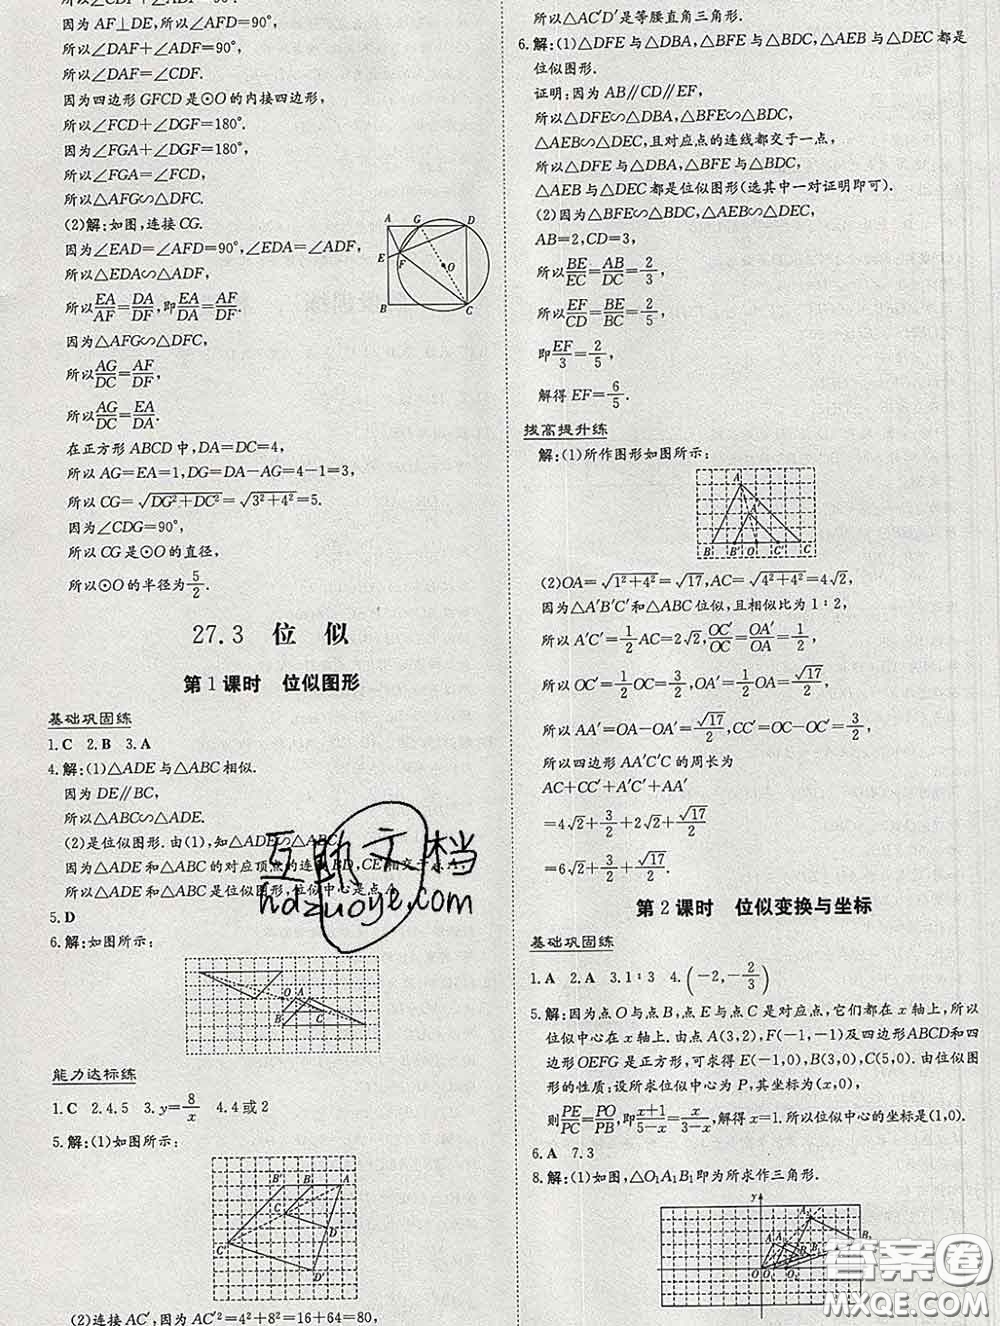 因为AF⊥DE,所以∠AFD=90°,
所以∠DAF+∠ADF=90°,
所以∠DAF=∠CDF.
因为四边形GFCD是⊙O的内接四边形,
所以∠FCD+∠DGF=180°.
因为∠FGA+∠DGF=180°,
所以∠FGA=∠FCD,
所以△AFG∽△DFC.
(2)解:如图,连接CG.
因为∠EAD=∠AFD=90°,∠EDA=∠ADF,
所以△EDA∽△ADF,
所以EA/AF=DA/DF,即EA/DA=AF/DF.
因为△AFG∽△DFC,
所以AG/DC=AF/DF,
所以AG/DC=EA/DA.
在正方形ABCD中,DA=DC=4,
所以AG=EA=1,DG=DA-AG=4-1=3,
所以CG=√(DG²+DC²)=√(3²+4²)=5.
因为∠CDG=90°,
所以CG是⊙O的直径,
所以⊙O的半径为5/2.
A G D
E F O
B C
27.3 位 似
第1课时 位似图形
基础巩固练
1.C 2.B 3.A
4.解:(1)△ADE与△ABC相似.
因为DE∥BC,
所以△ABC∽△ADE.
(2)是位似图形.由(1),知△ADE∽△ABC.
因为△ADE和△ABC的对应顶点的连线BD,CE相交于点A,
所以△ADE和△ABC是位似图形,位似中心是点A.
5.D
6.解:如图所示:
O A
B C
能力达标练
1.C 2.4.5 3.y=8/x 4.4或2
5.解:(1)如图所示:
B′ B A
C
D
C′
D′
(2)连接AC′,因为AC′²=4²+8²=16+64=80,
所以△AC′D′是等腰直角三角形.
6.解:(1)△DFE与△DBA,△BFE与△BDC,△AEB与△DEC都是
位似图形.
证明:因为AB∥CD∥EF,
所以△DFE∽△DBA,△BFE∽△BDC,
△AEB∽△DEC,且对应点的连线都交于一点,
所以△DFE与△DBA,△BFE与△BDC,
△AEB与△DEC都是位似图形(选其中一对证明即可).
(2)因为△BFE∽△BDC,△AEB∽△DEC,
AB=2,CD=3,
所以BE/EC=AB/DC=2/3,
所以EF/CD=BE/BC=2/5,
即EF/3=2/5,
解得EF=6/5.
拔高提升练
解:(1)所作图形如图所示:
A
A′
B B′ O C′ C
(2)OA=√(1²+4²)=√17,AC=√(4²+4²)=4√2,
因为△A′B′C′和△ABC位似,且相似比为1∶2,
所以A′C′=1/2AC=2√2,OC′/OC=OA′/OA=1/2,
所以OC′=1/2OC=3/2,OA′=1/2OA=√17/2,
所以AA′=OA-OA′=√17/2,CC′=OC-OC′=3/2,
所以四边形AA′C′C的周长为
AC+CC′+A′C′+AA′
=4√2+3/2+2√2+√17/2
=6√2+3/2+√17/2.
第2课时 位似变换与坐标
基础巩固练
1.A 2.A 3.1∶3 4.(-2,-2/3)
5.解:因为点O与点B,点E与点C是对应点,它们都在x轴上,所以
位似中心在x轴上.由点A(3,2),F(-1,-1)及四边形ABCD和四
边形OEFG是正方形,可求得E(-1,0),B(3,0),C(5,0).由位似图
形的性质:设所求位似中心为P,其坐标为(x,0),
则PE/PC=PO/PB,即(x+1)/(5-x)=x/(3-x),解得x=1.所以位似中心的坐标是(1,0).
6.A 7.3
8.解:(1)如图,△O₁A₁B₁即为所求作三角形.
y
互助文档
hdzuoye.com
答案圈
MXQE.COM